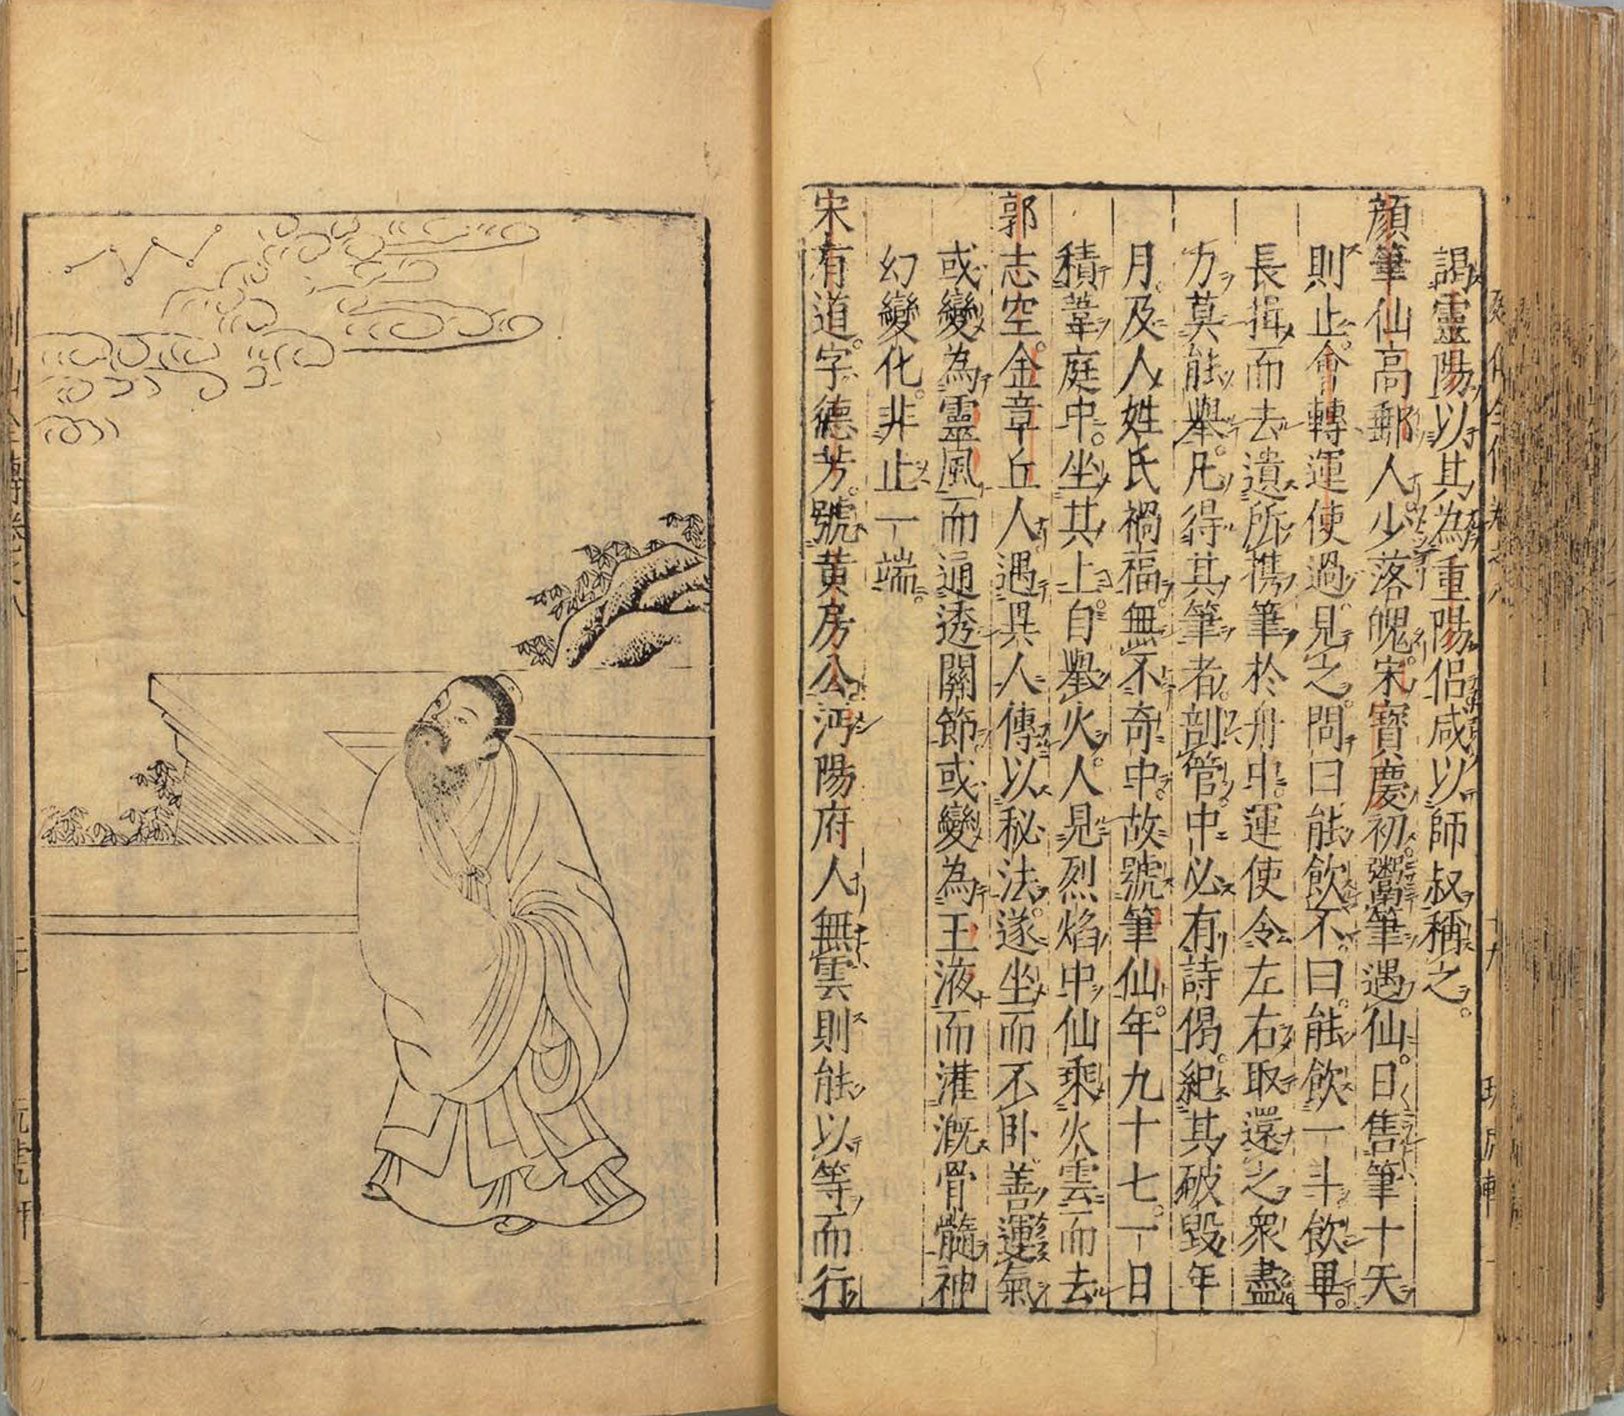 謁靈陽以其為重陽侶咸以師叔稱之。
顔筆仙高郵人。少落魄。宋寳慶初。鬻筆遇仙。日售筆十天
則止。會轉運使過。見之。問曰能飲不。曰。能飲一斗。飲畢。
長揖而去遺所携筆於舟中。運使令左右取還之衆盡
力莫能舉。凡得其筆者。剖管。中必有詩偈。紀其破毀年
月。及人姓氏禍福。無不奇中。故號筆仙。年九十七。一日
積葦庭中。坐其上。自舉火。人見烈焰中仙乘火雲而去
郭志空。金章丘人。遇異人傳以秘法。遂坐而不卧。善運氣
或變為靈風而通透關節或變為玉液而灌溉骨髓神
幻變化。非止一端。
宋有道。字德芳。號黄房公。沔陽府人無雲則能以等而行
列仙全傳卷之八
二十
玩虎軒